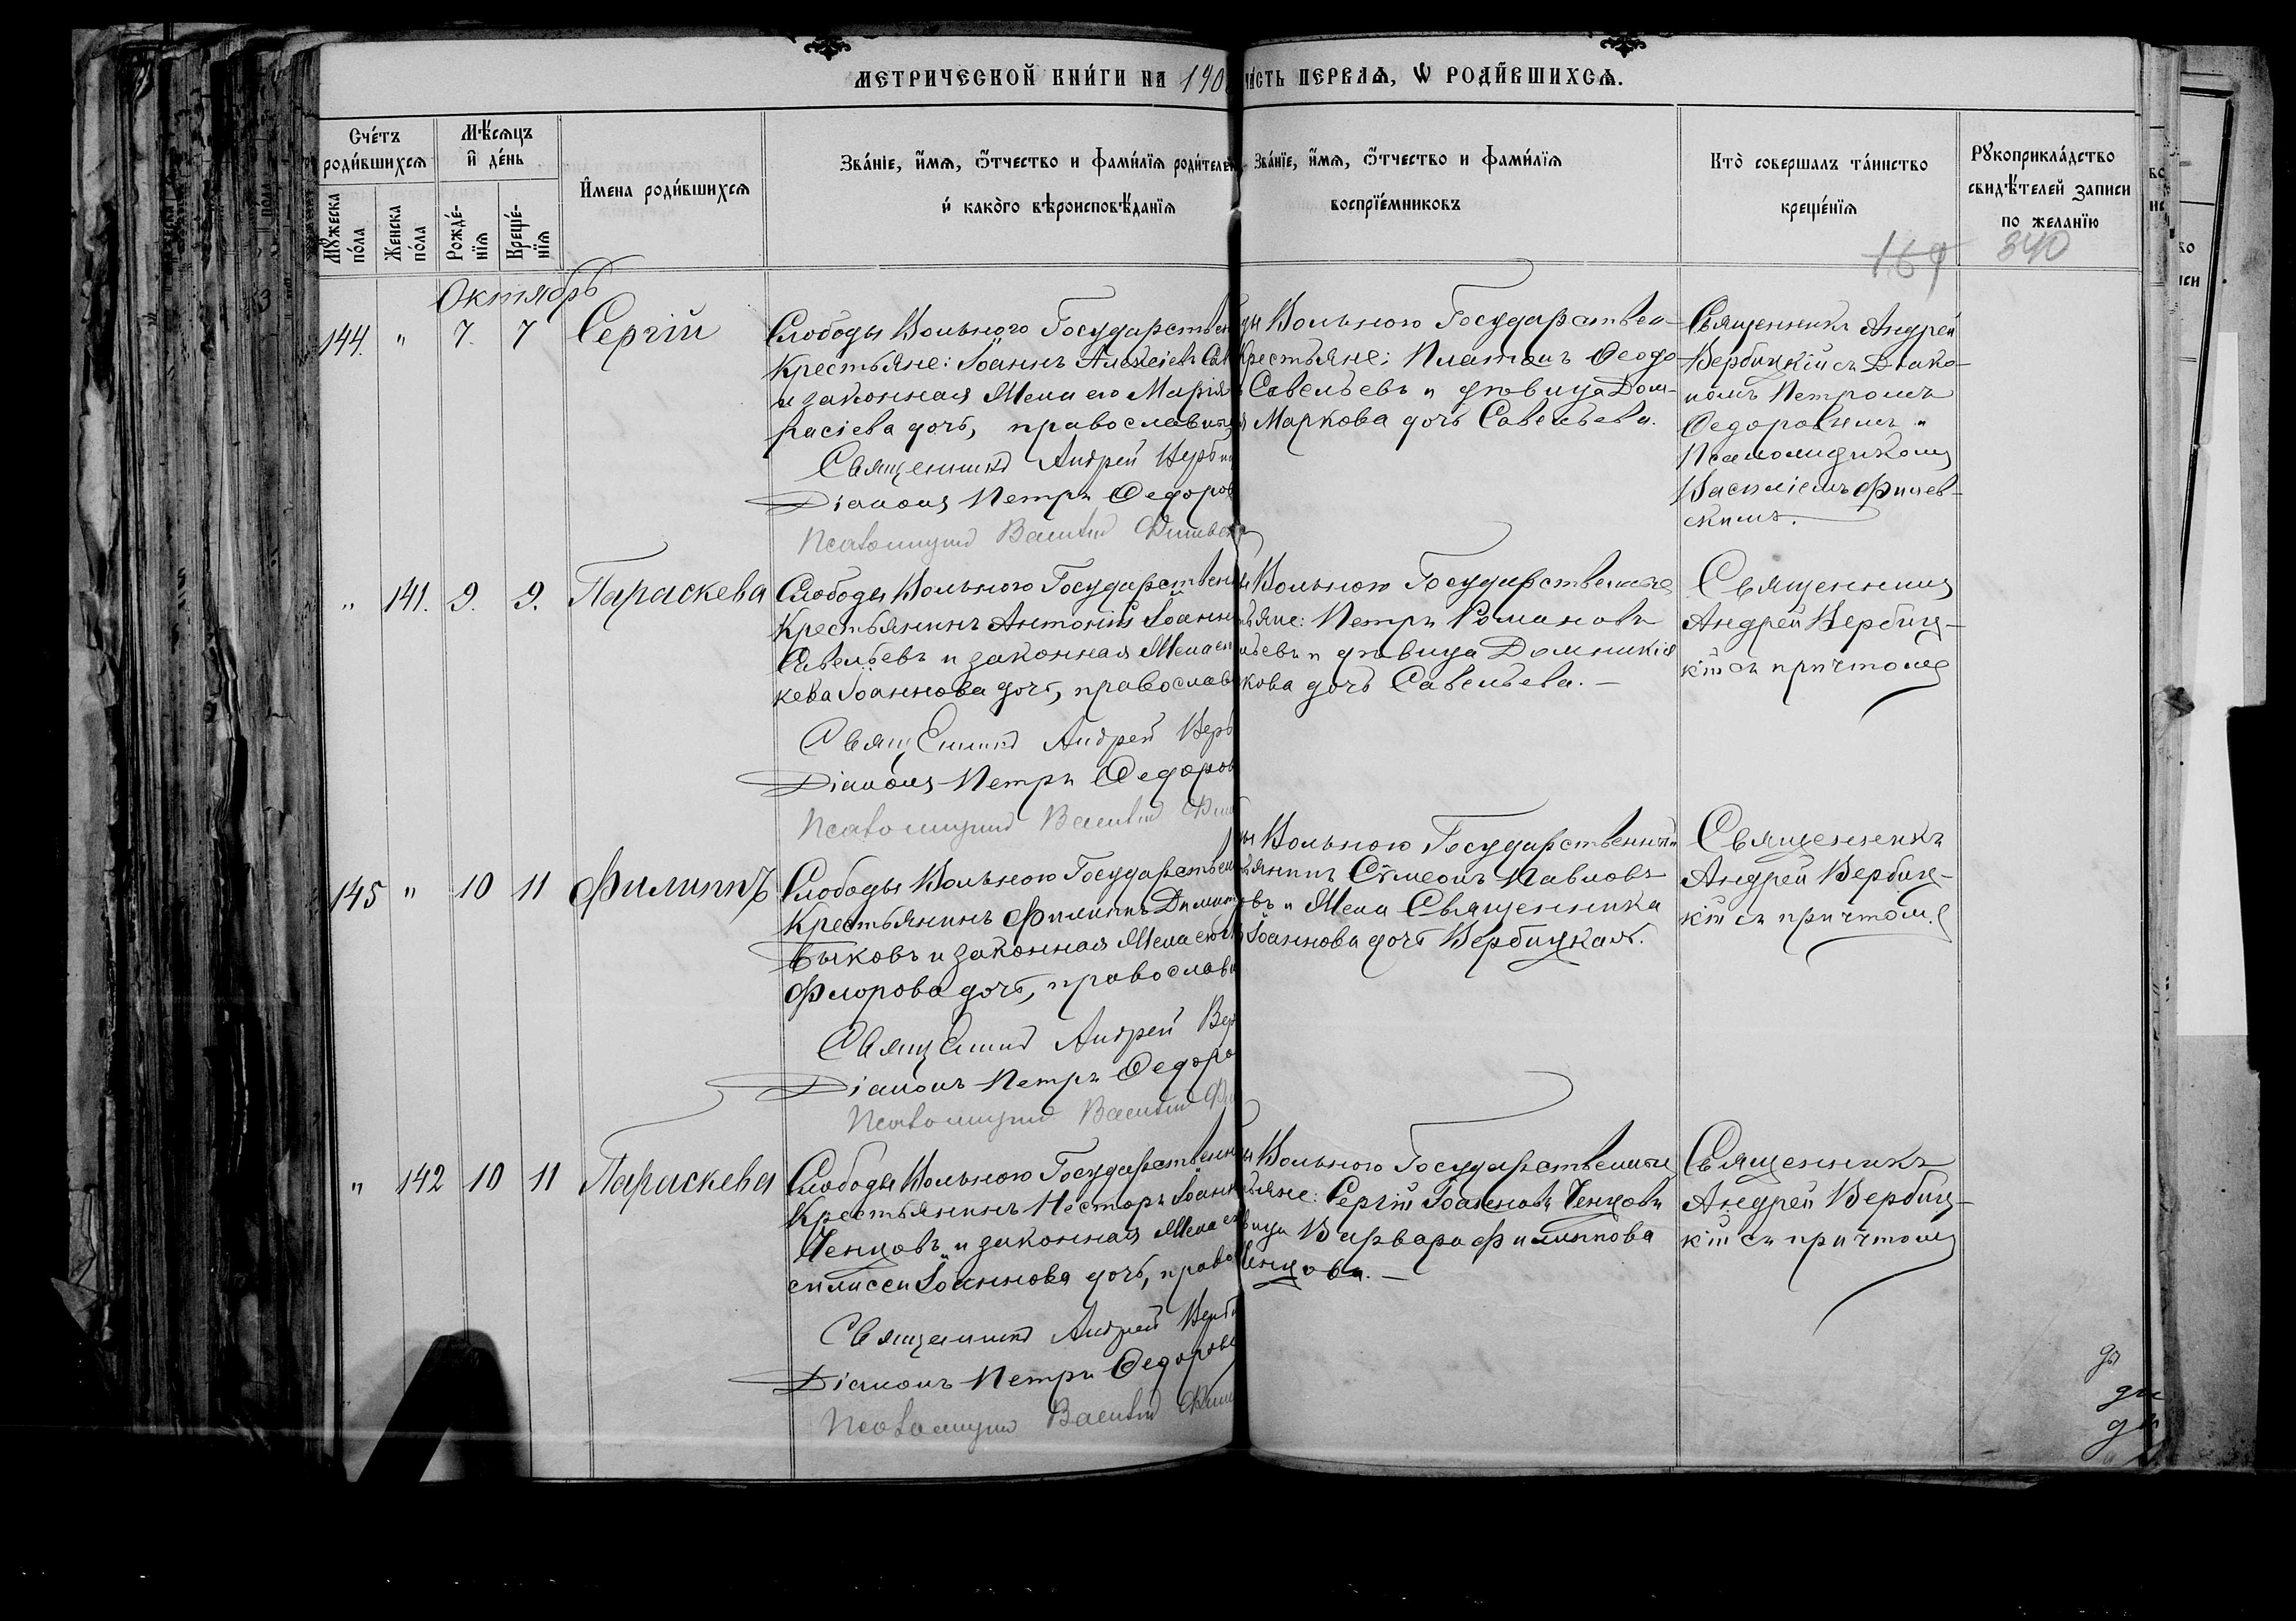 МЕТРИЧЕСКОЙ КНИ́ГИ НА 190
ЧА́СТЬ ПЕРВАѦ, Ѡ РОДИ́ВШИХСѦ.
Сче́тъ роди́вшихсѧ
Мꙋжеска по́ла
Женска по́ла
Мѣ́сяцъ и де́нь
Рожде́-нїѧ
Креще́-нїѧ
И́мена роди́вшихсѧ
Зва́нїе, и́мѧ, ѻ́тчество и фами́лїѧ родителей,
и какого вѣроисповѣ́данїѧ
Зва́нїе, и́мѧ, ѻ́тчество и фами́лїѧ
воспрїе́мниковъ
Кто̀ совершалъ та́инство
креще́нїѧ
Рꙋкоприкла́дство
свидѣ́телей записи
по желанїю
169 340
Октябрь
144. " 7. 7 Сергій
Слободы Вольного Государствен
Крестьяне: Іоаннъ Алексіевъ Сав
и законная Жена его Марія
расіева дочь, православн
Священникъ Андрей Верби
Діаконъ Петръ Ѳедоров
Псаломщикъ Василій Финевск
ды Вольного Государствен-
Крестьяне: Платонъ Ѳеодо-
Савельевъ и дѣвица Дом-
Маркова дочь Савельева.
Священникъ Андрей
Вербицкій съ Діако-
номъ Петромъ
Ѳедоровымъ и
Псаломщикомъ
Василіемъ Финев-
скимъ.
" 141. 9. 9. Параскева
Слободы Вольного Государствен
Крестьянинъ Антоній Іоанн
Савельевъ и законная Жена ег
кева Іоаннова дочь, православ
Священникъ Андрей Верб
Діаконъ Петръ Ѳедоров
Псаломщикъ Василій Фин
ы Вольного Государственные
ьяне: Петръ Романовъ
ьевъ и дѣвица Домникія
кова дочь Савельева. —
Священникъ
Андрей Вербиц-
кій съ причтомъ
145 " 10 11 Филиппъ
Слободы Вольного Государствен
Крестьянинъ Филиппъ Димит
Быковъ и законная Жена его
Флорова дочь, православ
Священникъ Андрей Вер
Діаконъ Петръ Ѳедоро
Псаломщикъ Василій Фи
ы Вольного Государственный
ьянинъ Сѵмеонъ Павловъ
овъ и Жена Священника
Іоаннова дочь Вербицкая.
Священникъ
Андрей Вербиц-
кій съ причтомъ
" 142 10 11 Параскева
Слободы Вольного Государственн
Крестьянинъ Несторъ Іоанн
Ченцовъ и законная Жена ег
силисса Іоаннова дочь, право
Священникъ Андрей Верби
Діаконъ Петръ Ѳедоров
Псаломщикъ Василій Фин
ы Вольного Государственные
ьяне: Сергій Іоанновъ Ченцовъ
вица Варвара Филиппова
Ченцова. —
Священникъ
Андрей Вербиц-
кій съ причтомъ